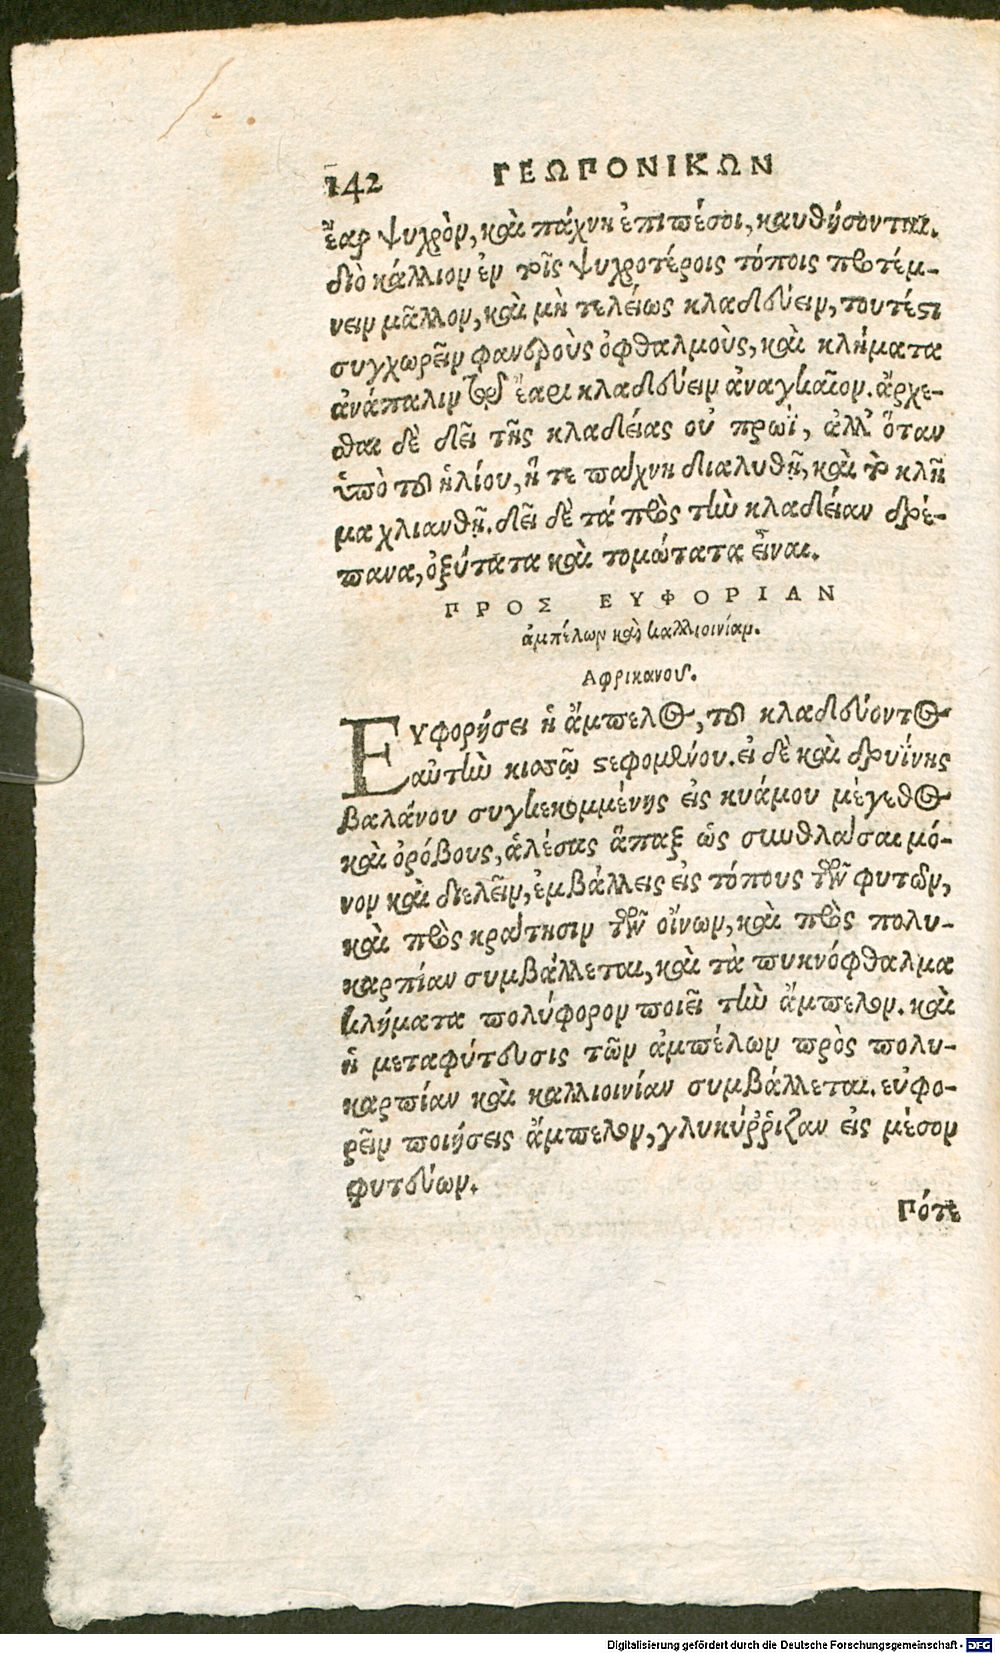 142 ΓΕΩΠΟΝΙΚΩΝ
ἔαρ ψυχρὸν, καὶ πάχνη ἐπιπέσοι, καυθήσονται.
διὸ κάλλιον ἐν τοῖς ψυχροτέροις τόποις προτέμ-
νειν μᾶλλον, καὶ μὴ τελείως κλαδεύειν, τουτέστι
συγχωρεῖν φανεροὺς ὀφθαλμοὺς, καὶ κλήματα
ἀνάπαλιν ἔαρι κλαδεύειν ἀναγκαῖον. ἄρχε-
σθαι δὲ δεῖ τῆς κλαδείας οὐ πρωῒ, ἀλλ' ὅταν
ὑπὸ τοῦ ἡλίου, ἥ τε πάχνη διαλυθῇ, καὶ τὸ κλῆ
μα χλιανθῇ. δεῖ δὲ τά πρὸς τὴν κλαδείαν δρέ-
πανα, ὀξύτατα καὶ τομώτατα εἶναι.
ΠΡΟΣ ΕΥΦΟΡΙΑΝ
ἀμπέλων καὶ καλλιοινίαν.
Αφρικανοῦ.
ΕΥφορήσει ἡ ἄμπελος, τοῦ κλαδεύοντος
αὐτὴν κισσῷ στεφομένου. εἰ δὲ καὶ δρυΐνης
βαλάνου συγκεκομμένης εἰς κυάμου μέγεθος
καὶ ὀρόβους, ἀλέσας ἅπαξ ὡς συνθλάσαι μό-
νον καὶ διελεῖν, ἐμβάλλεις εἰς τόπους τῶν φυτῶν,
καὶ πρὸς κράτησιν τῶν οἴνων, καὶ πρὸς πολυ-
καρπίαν συμβάλλεται, καὶ τὰ πυκνόφθαλμα
κλήματα πολύφορον ποιεῖ τὴν ἄμπελον. καὶ
ἡ μεταφύτευσις τῶν ἀμπέλων πρὸς πολυ-
καρπίαν καὶ καλλιοινίαν συμβάλλεται. εὐφο-
ρεῖν ποιήσεις ἄμπελον, γλυκύῤῥιζαν εἰς μέσον
φυτεύων.
Πότε
Digitalisierung gefördert durch die Deutsche Forschungsgemeinschaft - DFG